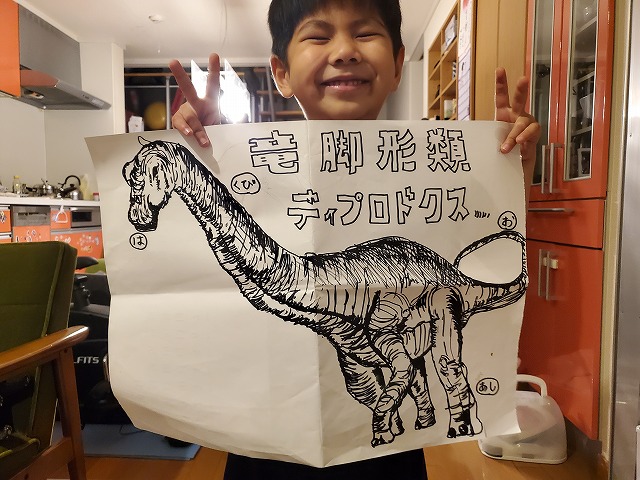 竜脚形類
ディプロドクス
くび
は
お
あし
FITS